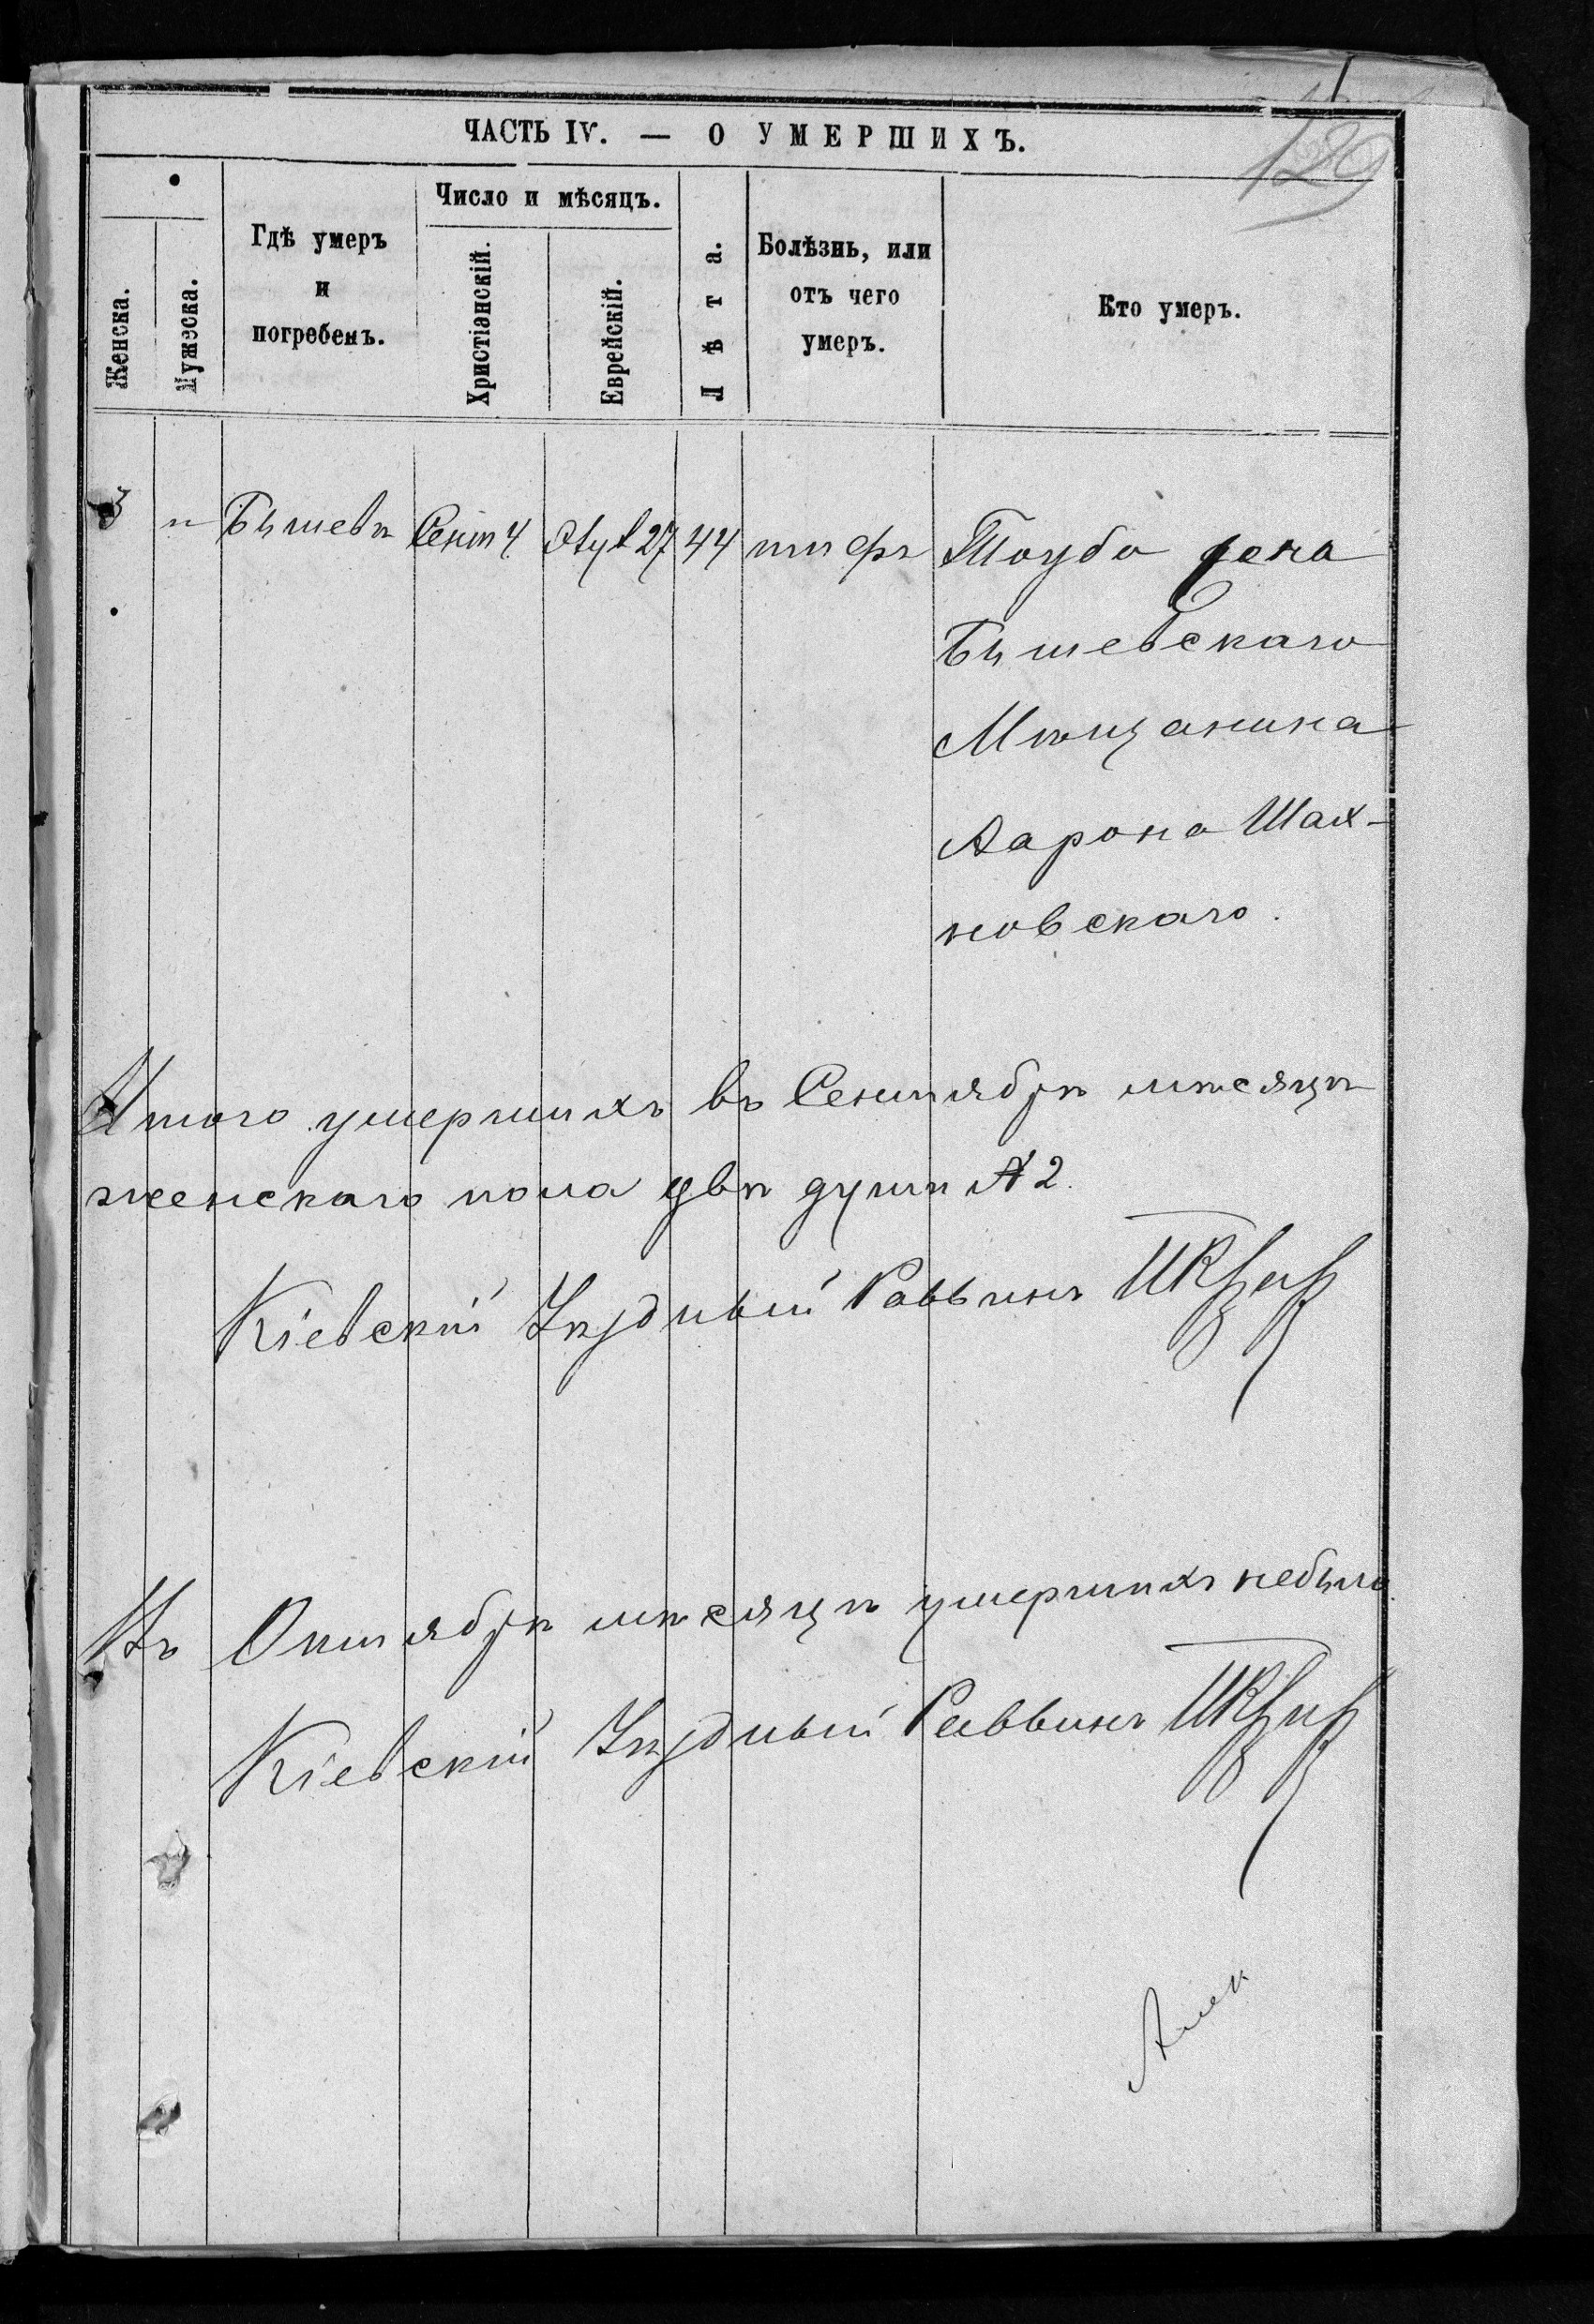 129
ЧАСТЬ IV. — О УМЕРШИХЪ.
Женска.
Мужеска.
Гдѣ умеръ
и
погребенъ.
Число и мѣсяцъ.
Христіанскій.
Еврейскій.
Лѣта.
Болѣзнь, или
отъ чего
умеръ.
Кто умеръ.
3 " Бышевѣ Сент 4 27 44 тифъ Тауба жена
Бышевскаго
Мѣщанина
Аарона Шах-
новскаго.
Итого умершихъ въ Сентябрѣ мѣсяцѣ
женскаго пола двѣ души № 2.
Кіевскій Уѣздный Раввинъ
Въ Октябрѣ мѣсяцѣ умершихъ небыло
Кіевскій Уѣздный Раввинъ